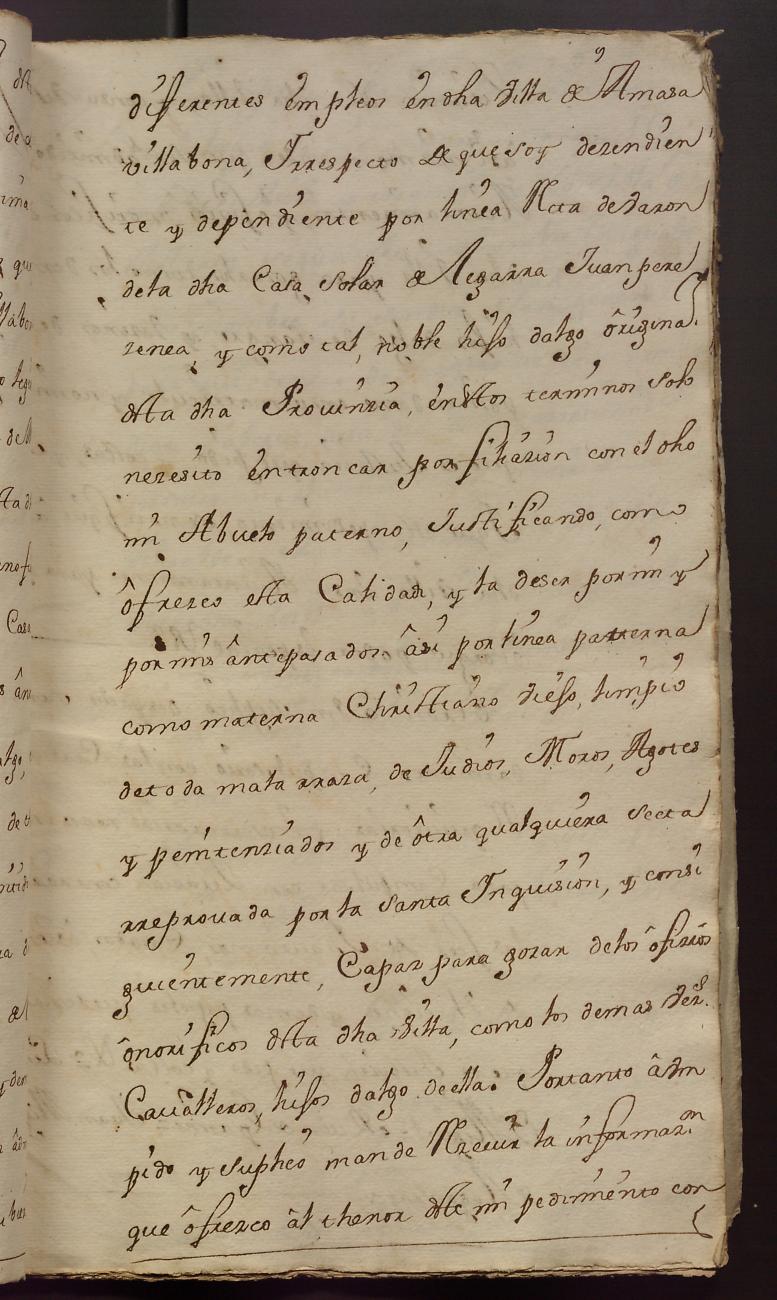 diferentes empleos en dha villa de Amasa
villabona, Irrespecto de que soy dezendien
te y dependiente por linea Recta de varon
de la dha Casa solar de Legarra Juanpere
renea, y como tal, noble hijo dalgo original
desta dha Provinzia, en estos terminos solo
nezesito entroncar por filiazion con el dho
mi Abuelo paterno, Justificando, como
ôfrezco esta Calidad, y la de ser por mi y
por mis ântepasados âsi por linea paterna
como materna Christiano viejo, limpio
de toda mala rraza, de Judios, Moros, Agotes
y penitenziados y de ôtra qualquiera secta
rreprovada por la santa Inquisizion, y consi
guientemente, Capaz para gozar de los ôfizios
ônorificos desta dha villa, como los demas vezs.
Cavalleros, hijos dalgo de ella. Portanto â Vm
pido y suplico mande Rrecivir la informazn
que ôfrezco âl thenor deste mi pedimiento con